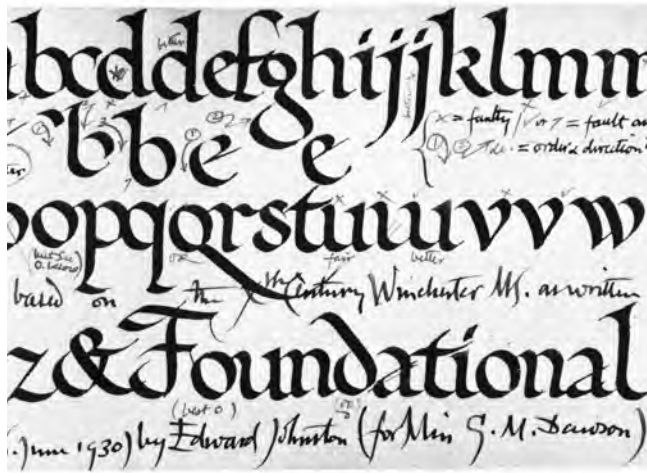 abcddefghijjklmm
better
bbee
x = faulty / ✓ or ↑ = fault an
① ② ↑ &c. = order & direction
opqrstuuuvvw
(but see O. below)
or
fair
better
based on the Xth Century Winchester MS. as written
z & Foundational
(best o)
(or)
(. June 1930) by Edward Johnston (for Miss G. M. Dawson)